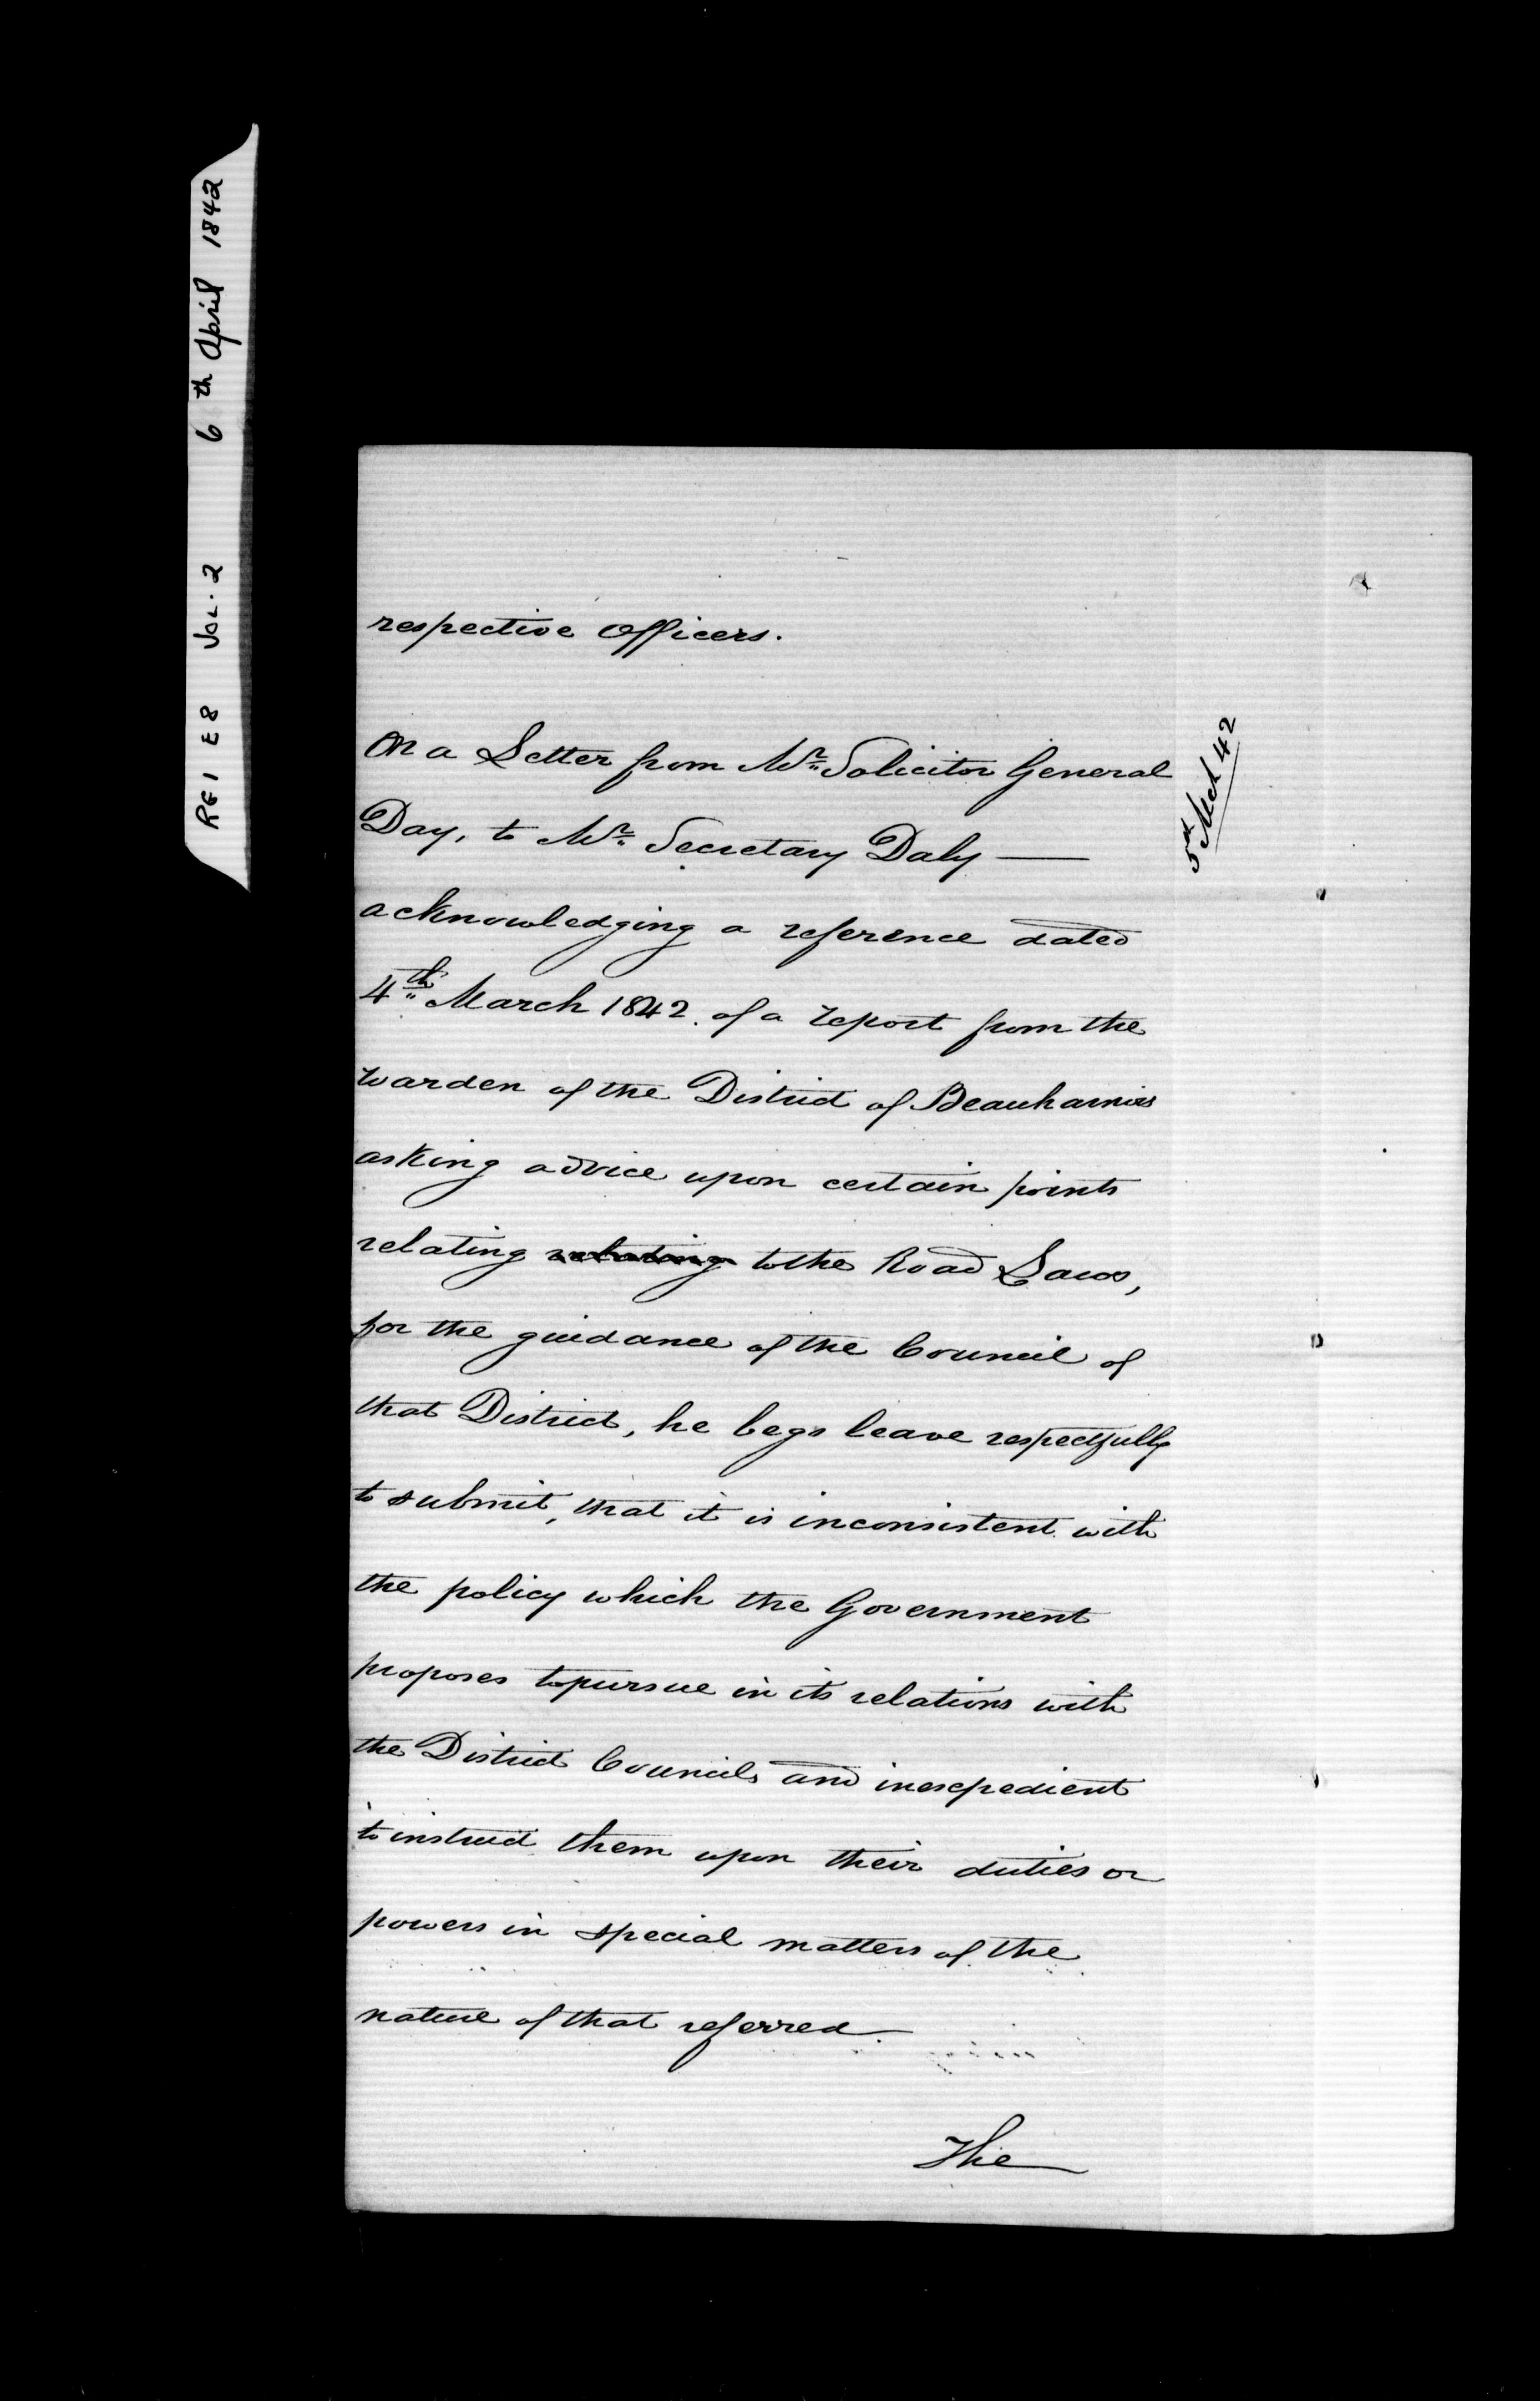 RG1 E8 Vol. 2 6th April 1842
respective Officers.
On a Letter from Mr. Solicitor General
Day, to Mr. Secretary Daly —
5th Mch 42
acknowledging a reference dated
4th March 1842. of a report from the
Warden of the District of Beauharnois
asking advice upon certain points
relating relating to the Road Laws,
for the guidance of the Council of
that District, he begs leave respectfully
to submit, that it is inconsistent with
the policy which the Government
proposes to pursue in its relations with
the District Councils and inexpedient
to instruct them upon their duties or
powers in special matters of the
nature of that referred.
The